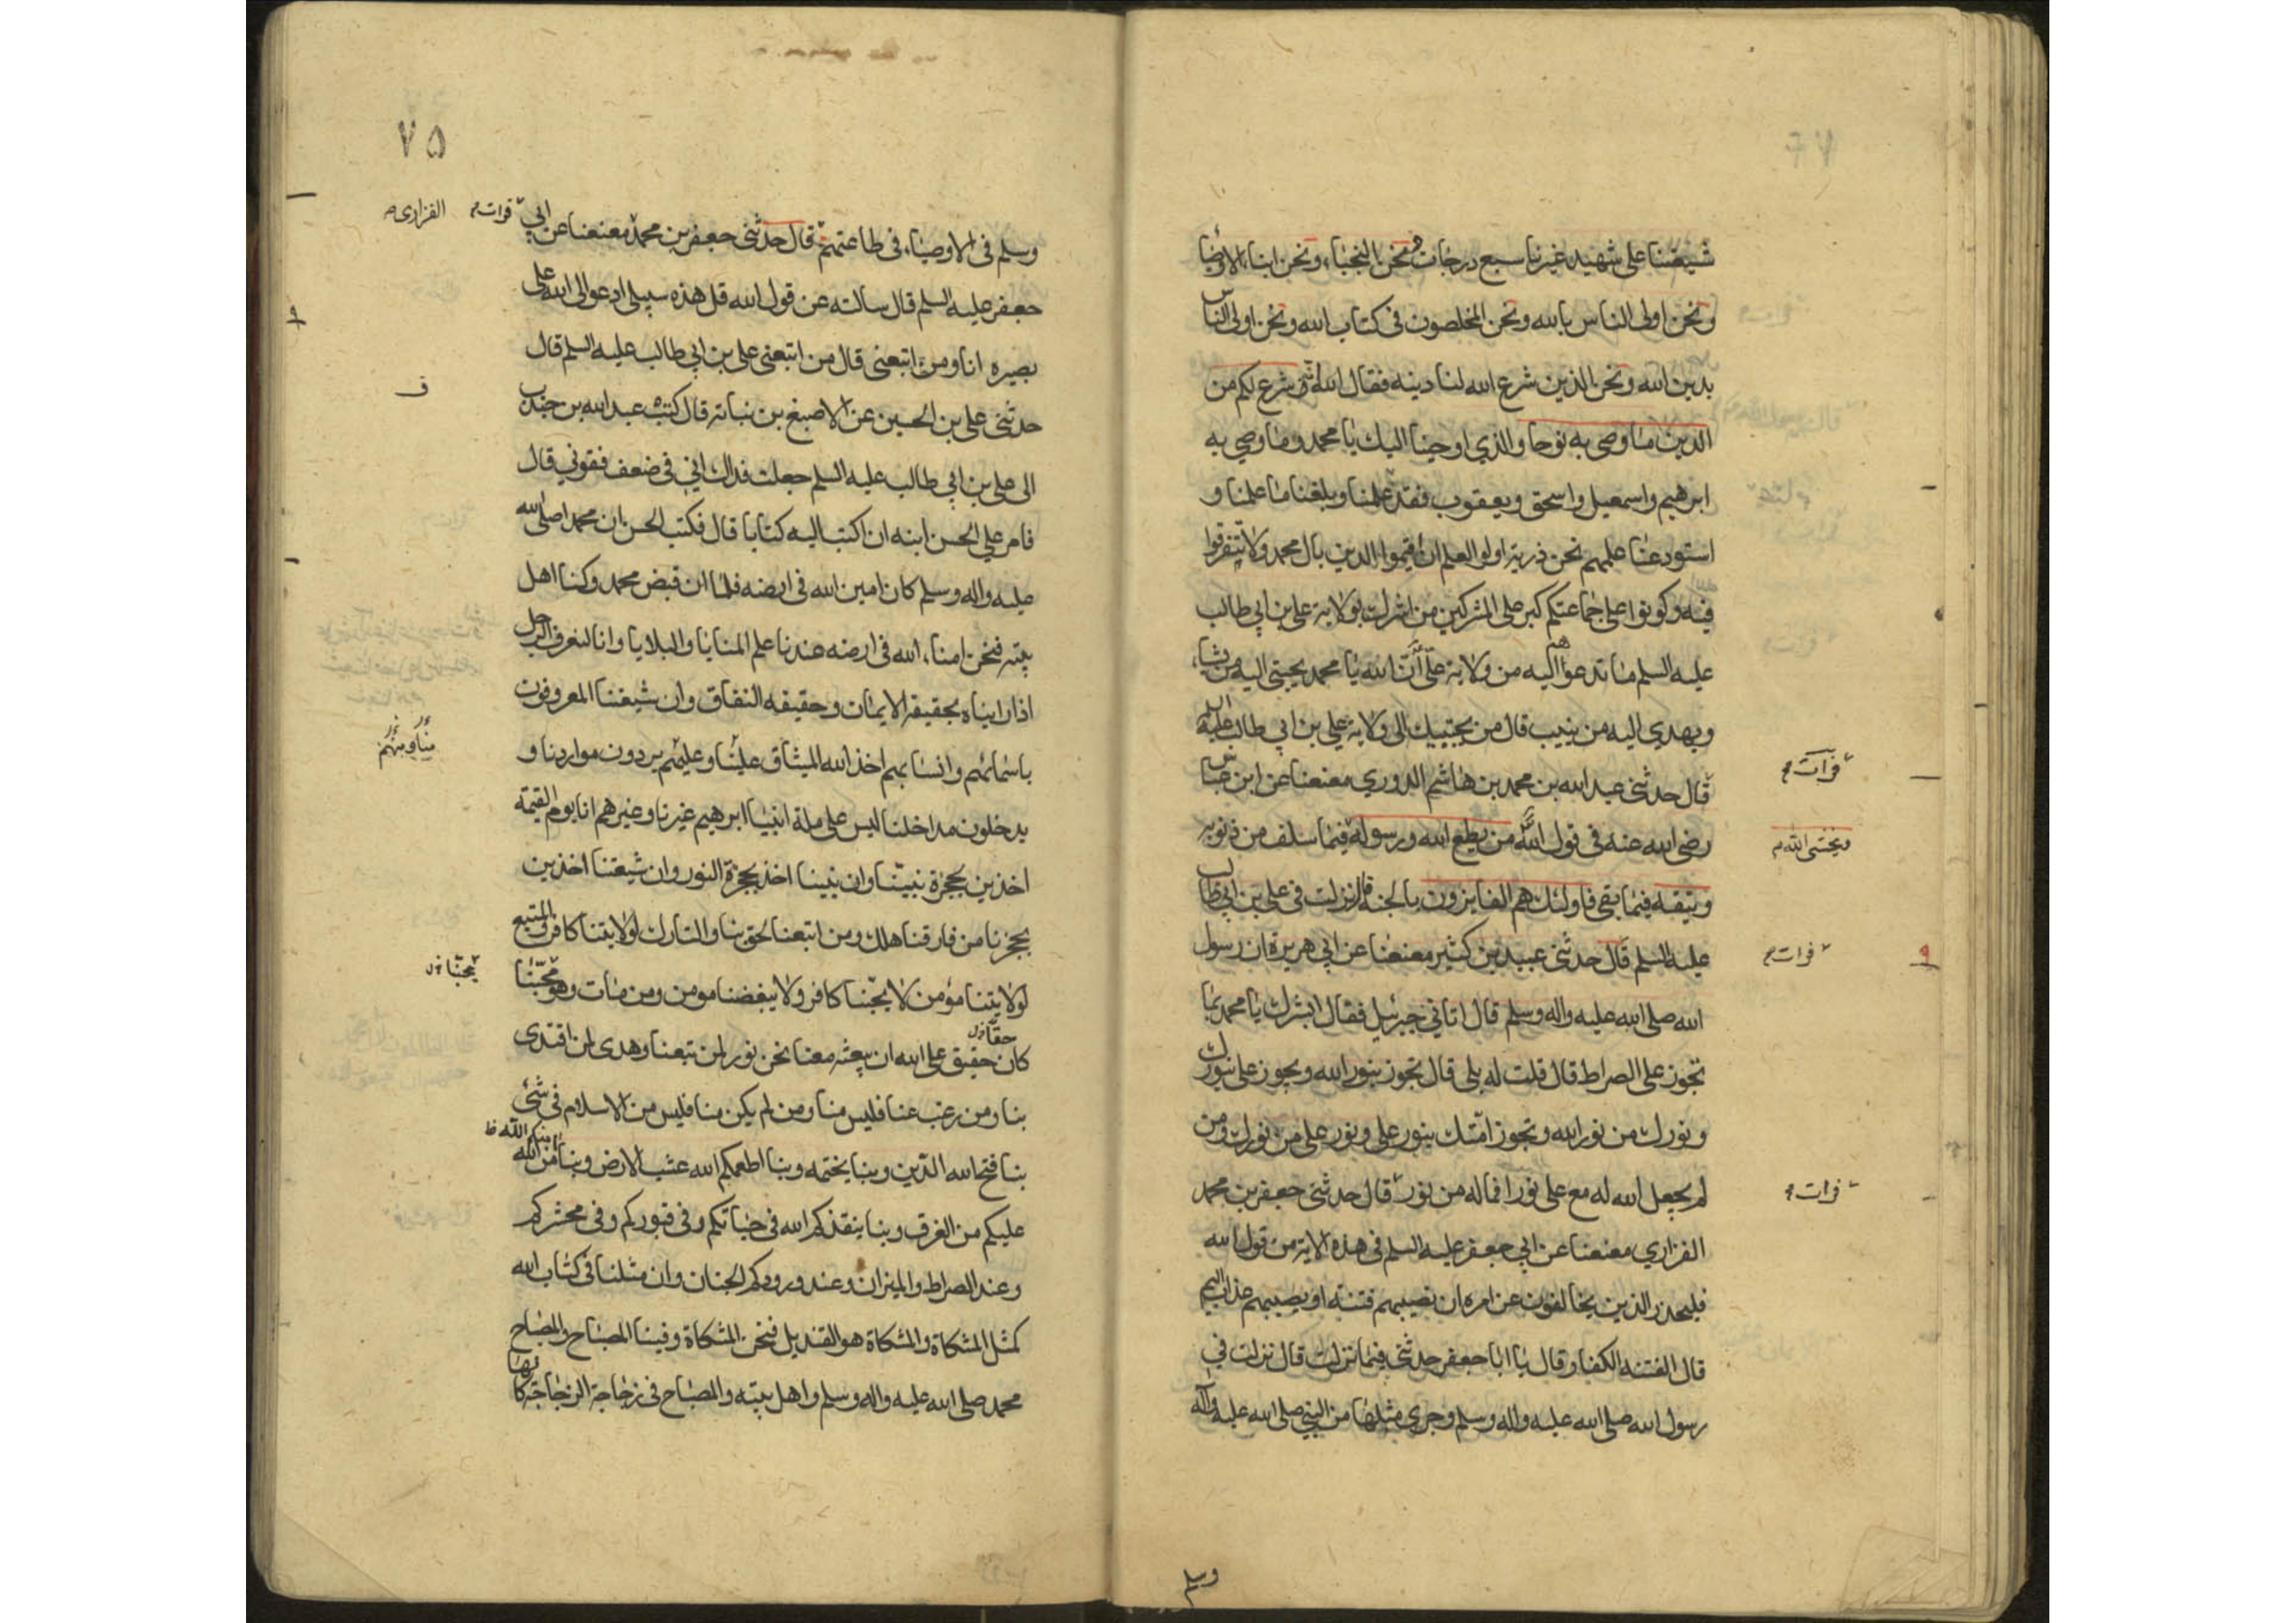 شيعتنا على شهيد غيرنا سبع درجات ونحن النجباء ونحن ابناء الاوصيا
ونحن اولى الناس بالله ونحن المخلصون فى كتاب الله ونحن اولى الناس
بدين الله ونحن الذين شرع الله لنا دينه فقال الله شرع لكم من
الدين ما وصى به نوحا والذي اوحينا اليك يا محمد وما وصى به
ابرهيم واسمعيل واسحق ويعقوب فقد علمنا وبلغنا ما علمنا و
استودعنا علمهم نحن ذرية اولو العلم ان اقيموا الدين بال محمد ولا تتفرقوا
فيه وكونوا على جماعتكم كبر على المشركين من اشرك بولاية على بن ابي طالب
عليه السلم ما تدعوهم اليه من ولاية على ان الله يا محمد يجتبى اليه من يشاء
ويهدي اليه من ينيب قال من يجتبيك الى ولاية على بن ابي طالب عليه السلم
فرات
قال حدثنى عبد الله بن محمد بن هاشم الدوري معنعنا عن ابن عباس
ويخشى الله
رضى الله عنه فى قول الله من يطع الله ورسوله فيما سلف من ذنوبه
ويتقه فيما بقى فاولئك هم الفايزون بالجنة قال نزلت فى على بن ابي طالب
فرات
عليه السلم قال حدثنى عبيد بن كثير معنعنا عن ابي هريرة ان رسول
الله صلى الله عليه واله وسلم قال اتاني جبرئيل فقال ابشرك يا محمد بما
تجوز على الصراط قال قلت له بلى قال تجوز بنور الله ويجوز على بنورك
ونورك من نور الله وتجوز امتك بنور على ونور على من نورك ومن
فرات
لم يجعل الله له مع على نورا فما له من نور قال حدثنى جعفر بن محمد
الفزاري معنعنا عن ابي جعفر عليه السلم فى هذه الاية من قول الله
فليحذر الذين يخالفون عن امره ان تصيبهم فتنة او يصيبهم عذاب اليم
قال الفتنه الكفار قال يا ابا جعفر حدثنى فيما نزلت قال نزلت في
رسول الله صلى الله عليه واله وسلم وجرى مثلها من النبى صلى الله عليه واله
وسلم
٧٥
وسلم فى الاوصياء فى طاعتهم قال حدثنى جعفر بن محمد معنعنا عن ابي
فرات
الفزارى
جعفر عليه السلم قال سالته عن قول الله قل هذه سبيلى ادعوا الى الله على
بصيره انا ومن اتبعنى قال من اتبعنى على بن ابي طالب عليه السلم قال
ف
حدثنى على بن الحسين عن الاصبغ بن نباته قال كتب عبد الله بن جندب
الى على بن ابي طالب عليه السلم جعلت فداك اني فى ضعف فقوني قال
فامر علي الحسن ابنه ان اكتب اليه كتابا قال فكتب الحسن ان محمدا صلى الله
عليه واله وسلم كان امين الله فى ارضه فلما ان قبض محمد وكنا اهل
بيته فنحن امناء الله فى ارضه عندنا علم المنايا والبلايا وانا لنعرف الرجل
اذا رايناه بحقيقة الايمان وحقيقه النفاق وان شيعتنا المعروفون
باسمائهم وانسابهم اخذ الله الميثاق علينا وعليهم يردون مواردنا و
يدخلون مداخلنا ليس على ملة ابينا ابرهيم غيرنا وغيرهم انا يوم القيمة
اخذين بحجزة نبينا وان نبينا اخذ بحجزة النور وان شيعتنا اخذين
بحجزنا من فارقنا هلك ومن اتبعنا لحق بنا والتارك لولايتنا كافر والمتبع
يحبنا
لولايتنا مؤمن لا يحبنا كافر ولا يبغضنا مومن ومن مات وهو محبنا
حقا
كان حقيق على الله ان يبعثه معنا نحن نور لمن تبعنا وهدى لمن اقتدى
بنا ومن رغب عنا فليس منا ومن لم يكن منا فليس من الاسلام فى شئ
بنا فتح الله الدين وبنا يختمه وبنا اطعمكم الله عشب الارض وبنا من الله
عليكم من الغرق وبنا ينقذكم الله فى حياتكم وفى قبوركم وفى محشركم
وعند الصراط والميزان وعند ورودكم الجنان وان مثلنا فى كتاب الله
كمثل المشكاة والمشكاة هو القنديل فنحن المشكاة وفينا المصباح والمصباح
محمد صلى الله عليه واله وسلم واهل بيته والمصباح فى زجاجة الزجاجة كانها